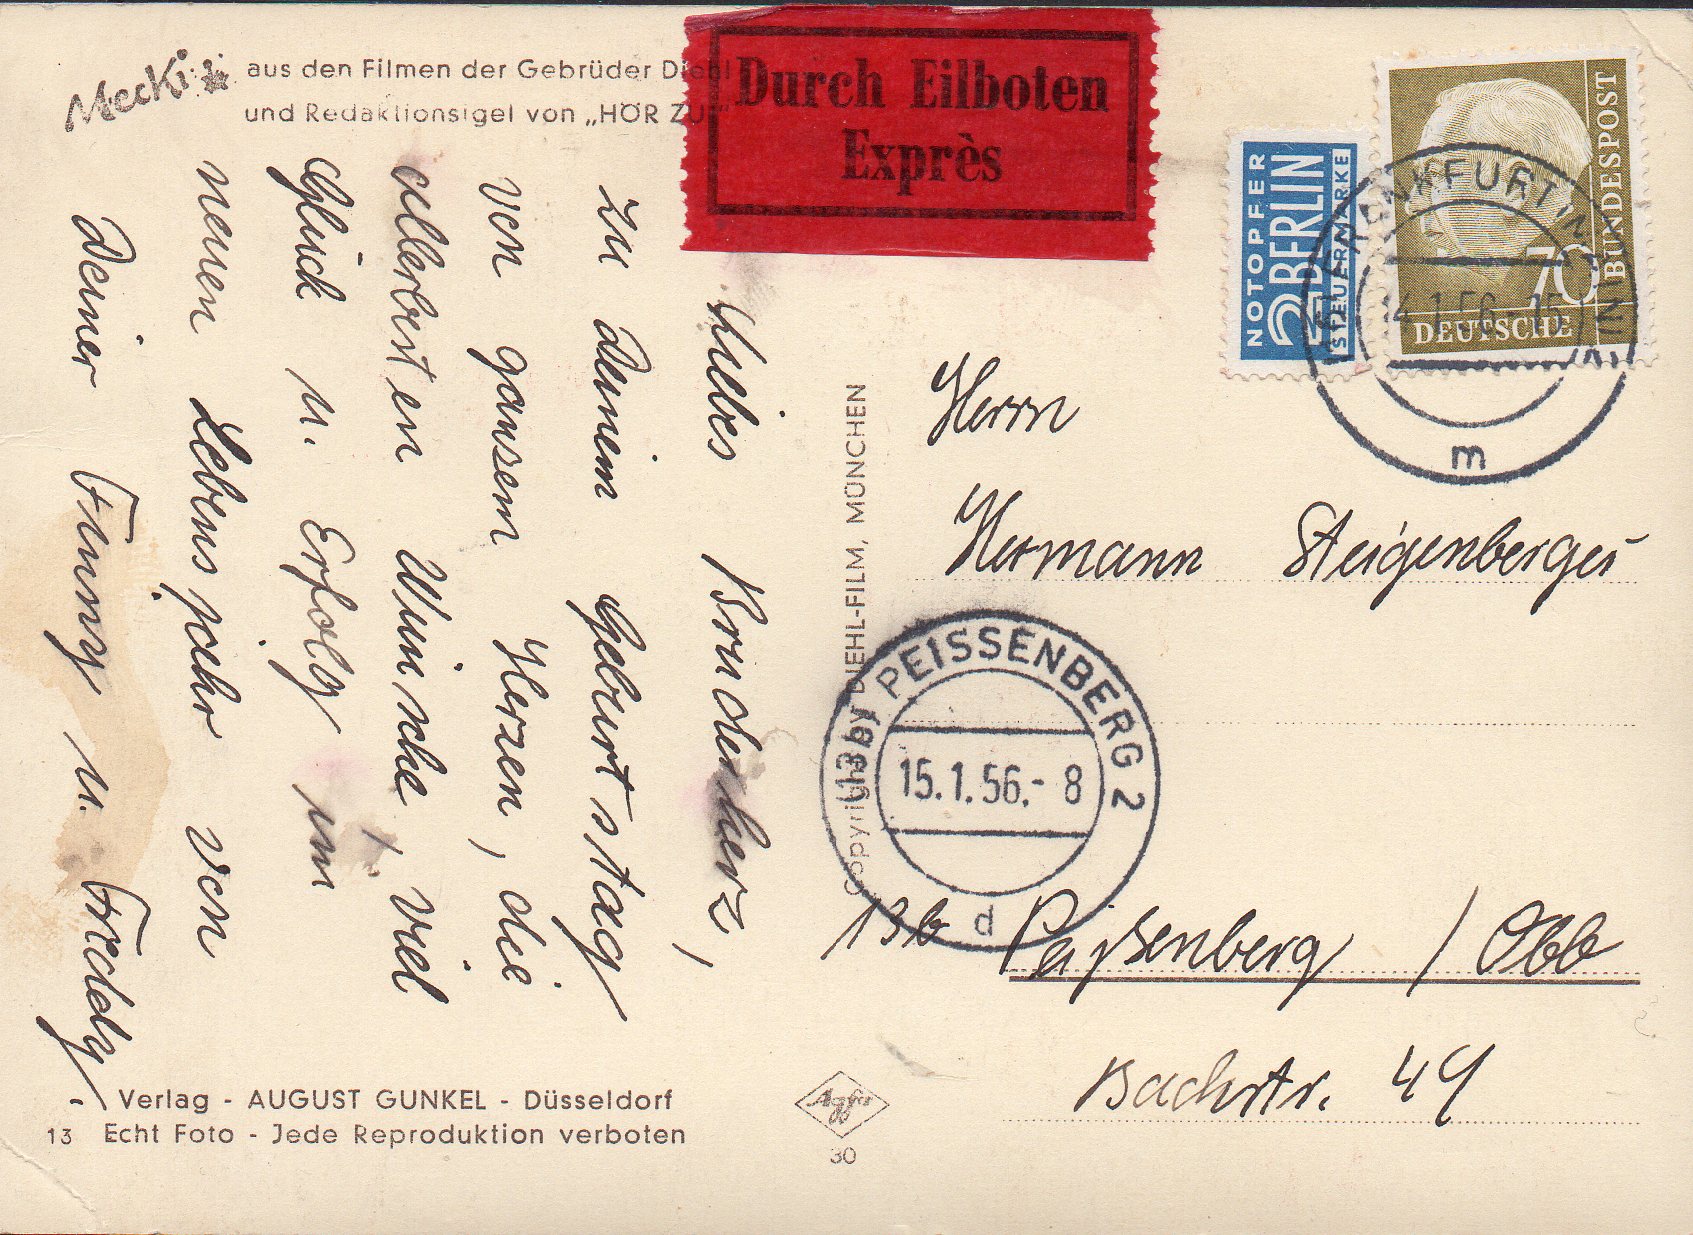 Mecki
aus den Filmen der Gebrüder Diehl
und Redaktionsigel von „HÖR ZU"
Durch Eilboten
Exprès
NOTOPFER
2 BERLIN
STEUERMARKE
70
DEUTSCHE
BUNDESPOST
FRANKFURT (MAIN)
14.1.56.-15
m
Liebes Bruderherz,
zu Deinem Geburtstag
von ganzem Herzen, die
allerbesten Wünsche, viel
Glück u. Erfolg im
neuen Lebensjahr von
Deiner Finny u. Freddy
Copyright by DIEHL-FILM, MÜNCHEN
Herrn
Hermann Steigenberger
(13b) PEISSENBERG 2
15.1.56.-8
d
13b Peißenberg / Obb
Bachstr. 49
Verlag - AUGUST GUNKEL - Düsseldorf
13 Echt Foto - Jede Reproduktion verboten
Agfa
30